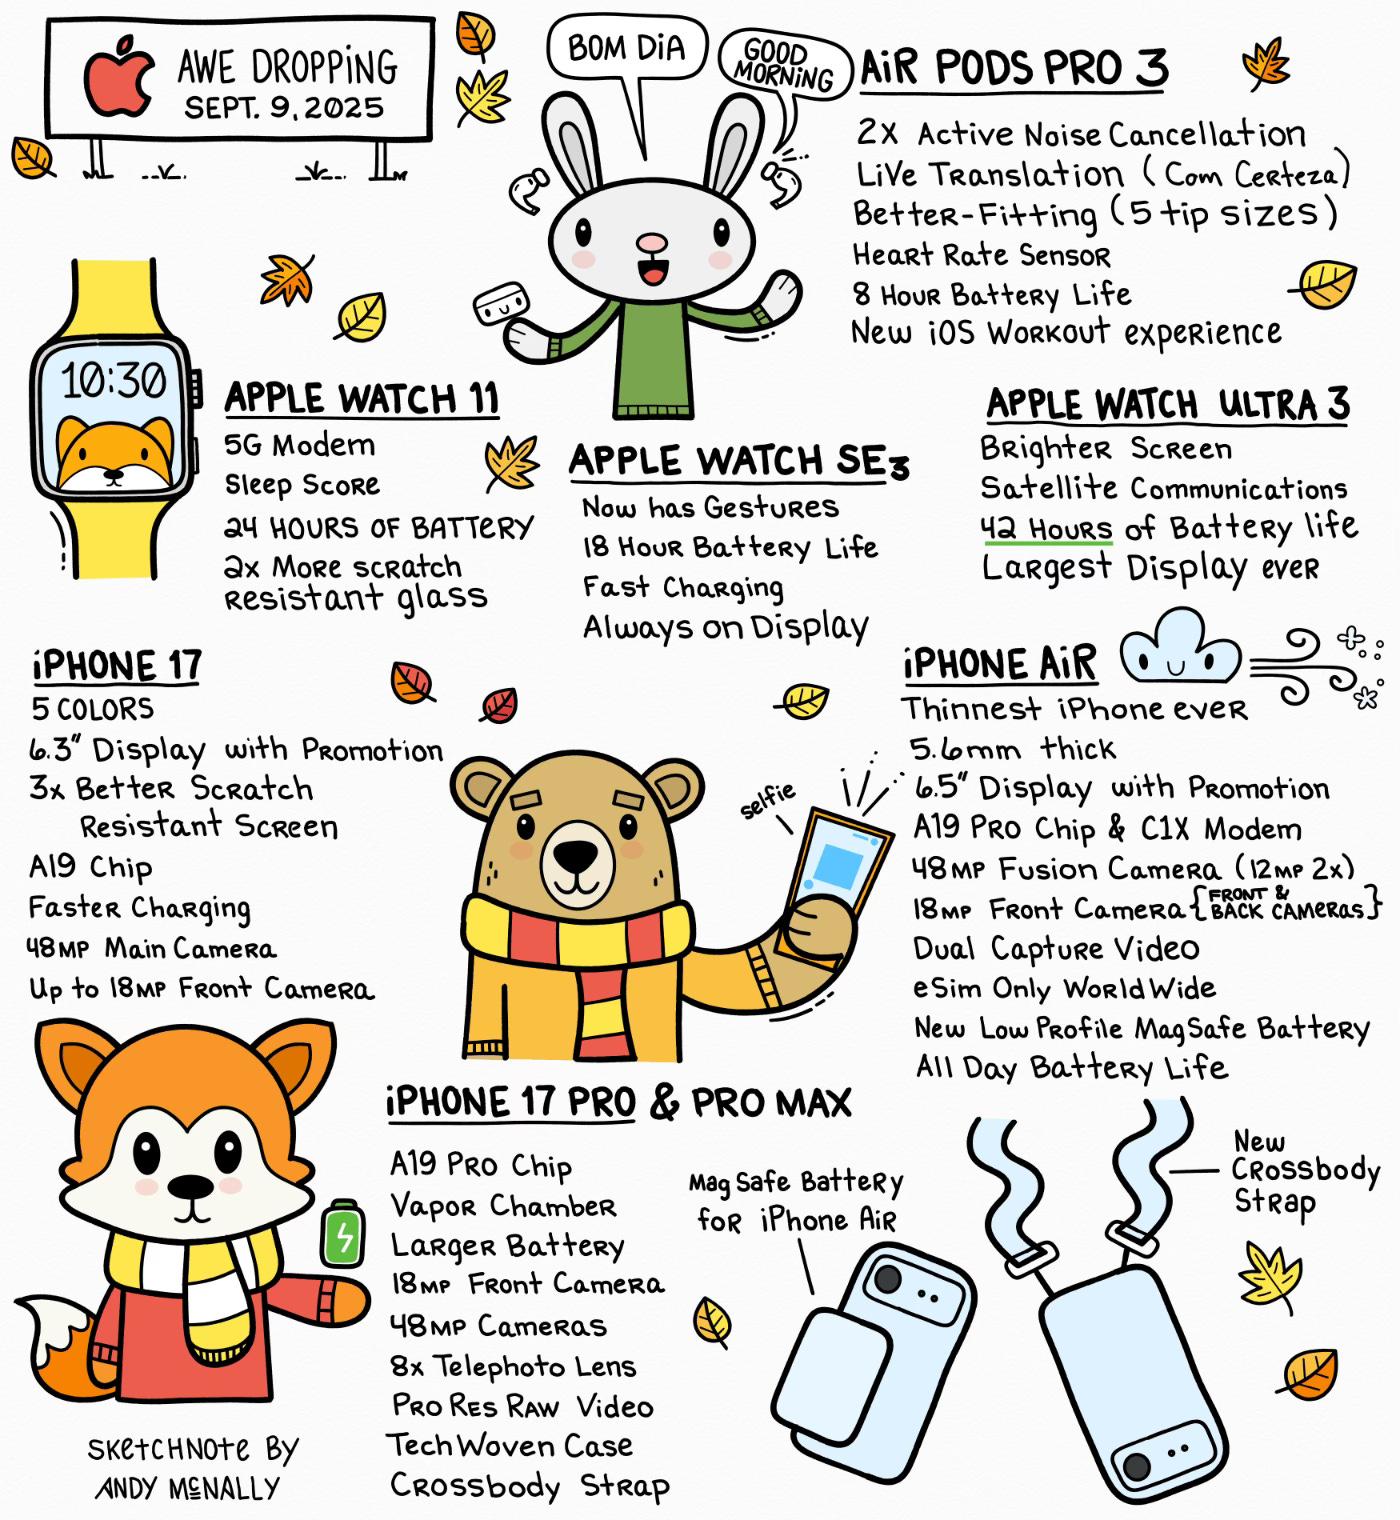 AWE DROPPiNG
SEPT. 9, 2025
BOM DiA
GOOD
MORNiNG
AiR PODS PRO 3
2x Active Noise Cancellation
Live Translation (Com Certeza)
Better-Fitting (5 tip sizes)
Heart Rate Sensor
8 Hour Battery Life
New iOS Workout experience
10:30
APPLE WATCH 11
5G Modem
Sleep Score
24 HOURS OF BATTERY
2x More scratch
Resistant glass
APPLE WATCH SE3
Now has Gestures
18 Hour Battery Life
Fast Charging
Always on Display
APPLE WATCH ULTRA 3
Brighter Screen
Satellite Communications
42 Hours of Battery life
Largest Display ever
iPHONE 17
5 COLORS
6.3" Display with Promotion
3x Better Scratch
Resistant Screen
A19 Chip
Faster Charging
48MP Main Camera
Up to 18MP Front Camera
selfie
iPHONE AiR
Thinnest iPhone ever
5.6mm thick
6.5" Display with Promotion
A19 Pro Chip & C1X Modem
48MP Fusion Camera (12MP 2x)
18MP Front Camera {FRONT &
BACK CAMERAS}
Dual Capture Video
eSim Only WorldWide
New Low Profile MagSafe Battery
All Day Battery Life
iPHONE 17 PRO & PRO MAX
A19 Pro Chip
Vapor Chamber
Larger Battery
18MP Front Camera
48MP Cameras
8x Telephoto Lens
ProRes Raw Video
TechWoven Case
Crossbody Strap
MagSafe Battery
for iPhone Air
New
Crossbody
Strap
SKETCHNOTE BY
ANDY McNALLY